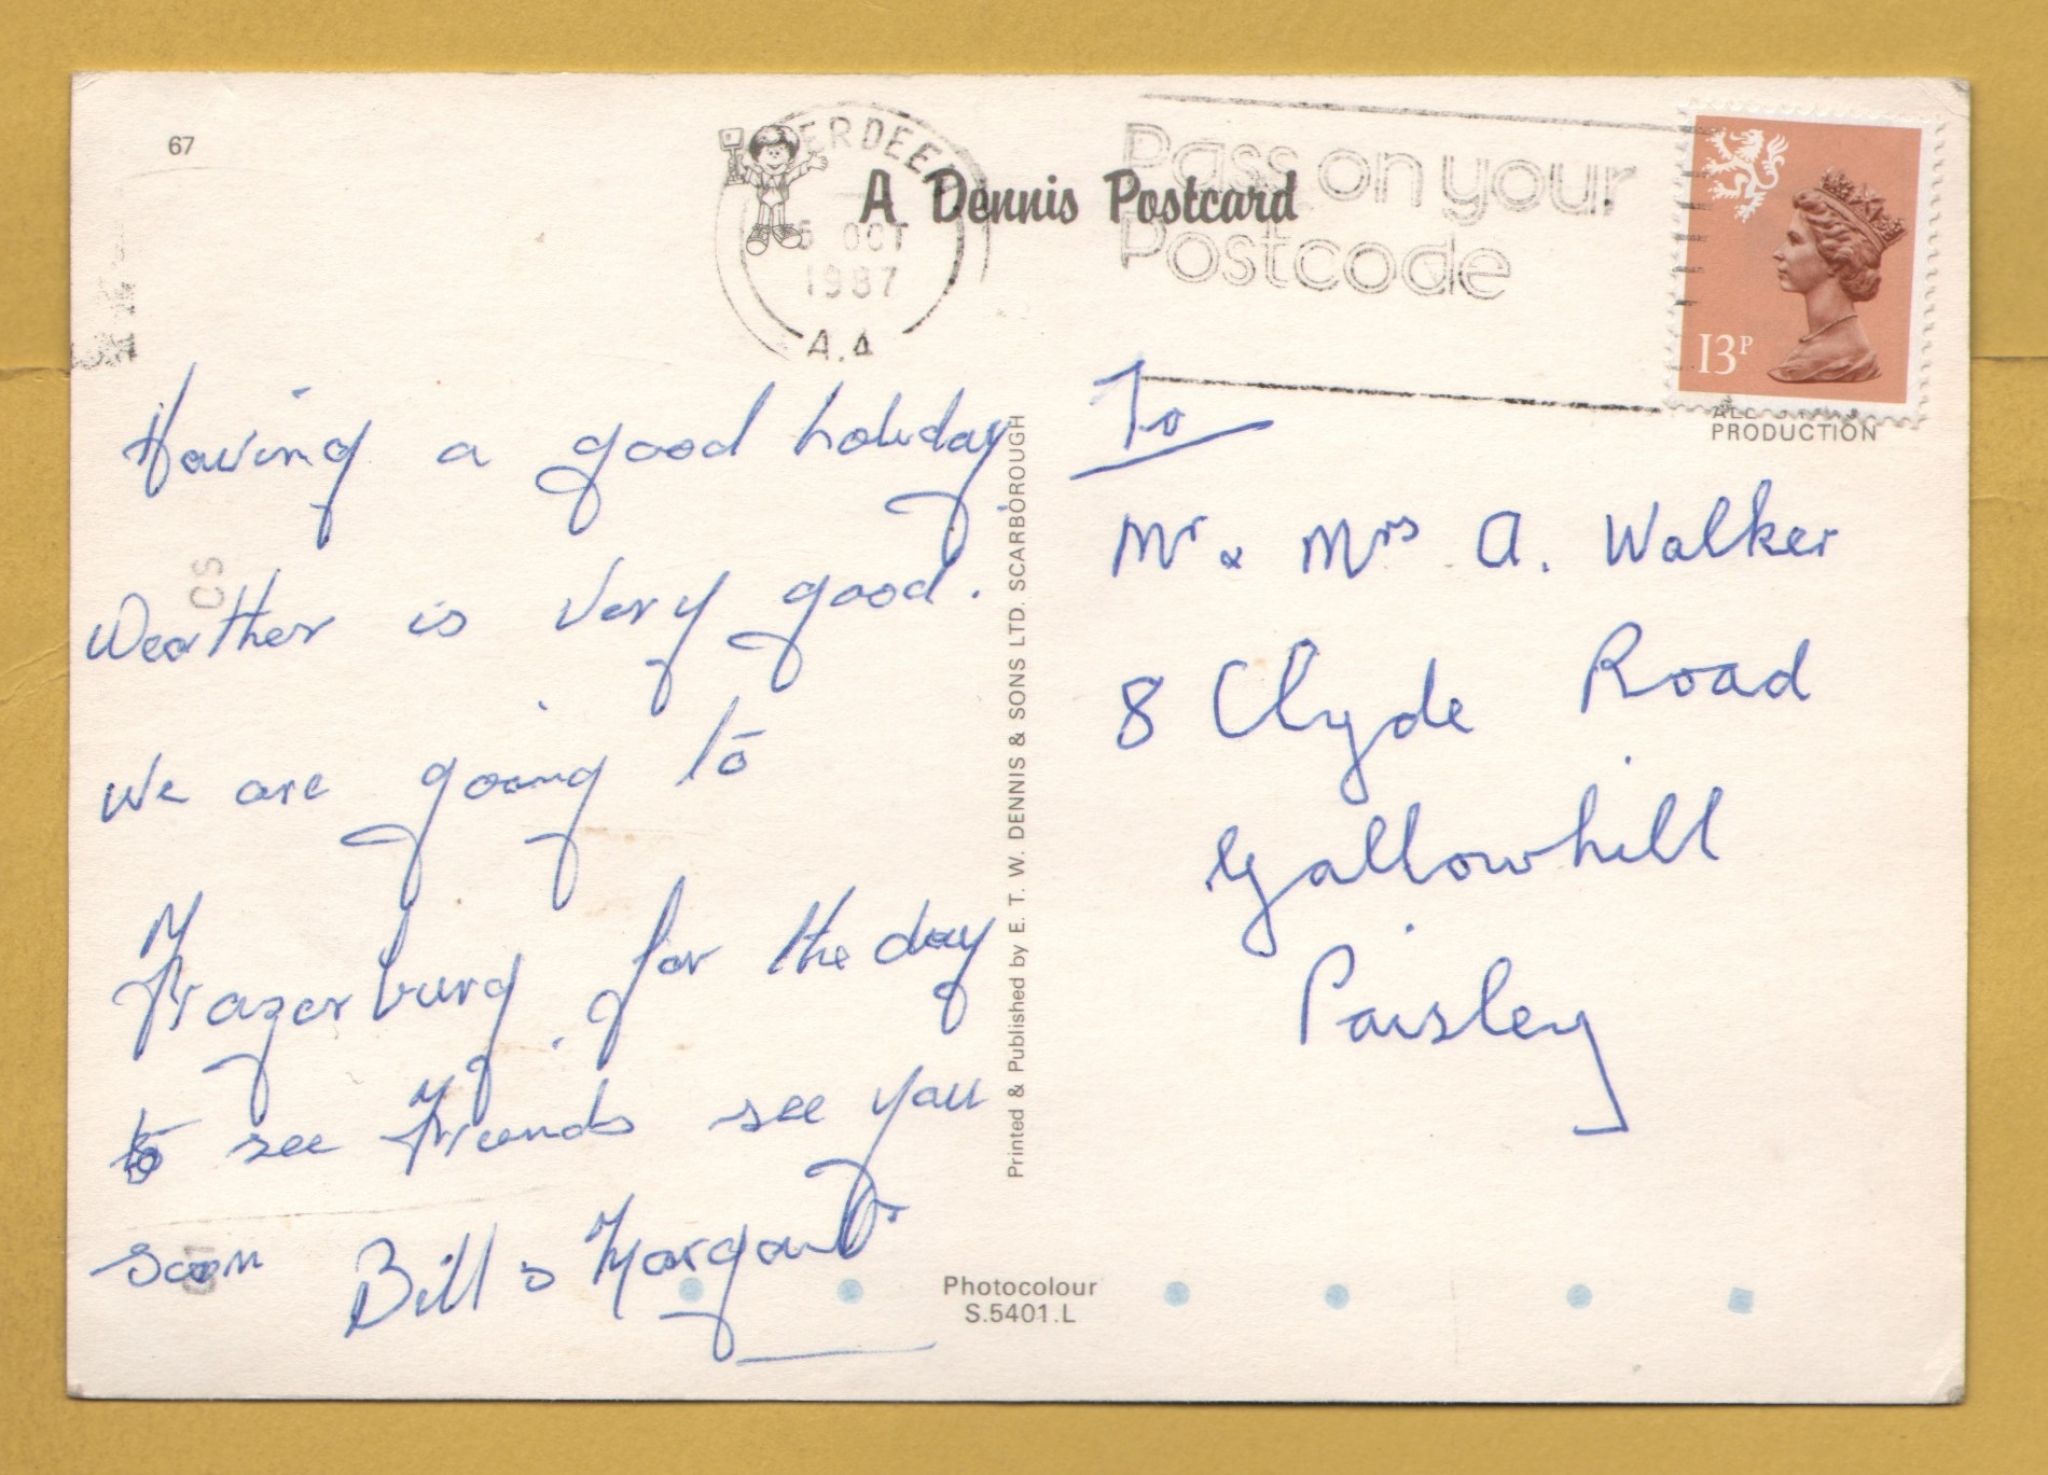 67
A Dennis Postcard
ERDEEN
5 OCT
1987
A.A
Pass on your
Postcode
13P
PRODUCTION
Having a good holiday.
Weather is very good.
We are going to
Frazerburg. for the day
to see friends see you
soon Bill & Margaret
CS
Printed & Published by E. T. W. DENNIS & SONS LTD. SCARBOROUGH
To
Mr & Mrs A. Walker
8 Clyde Road
Gallowhill
Paisley
Photocolour
S.5401.L